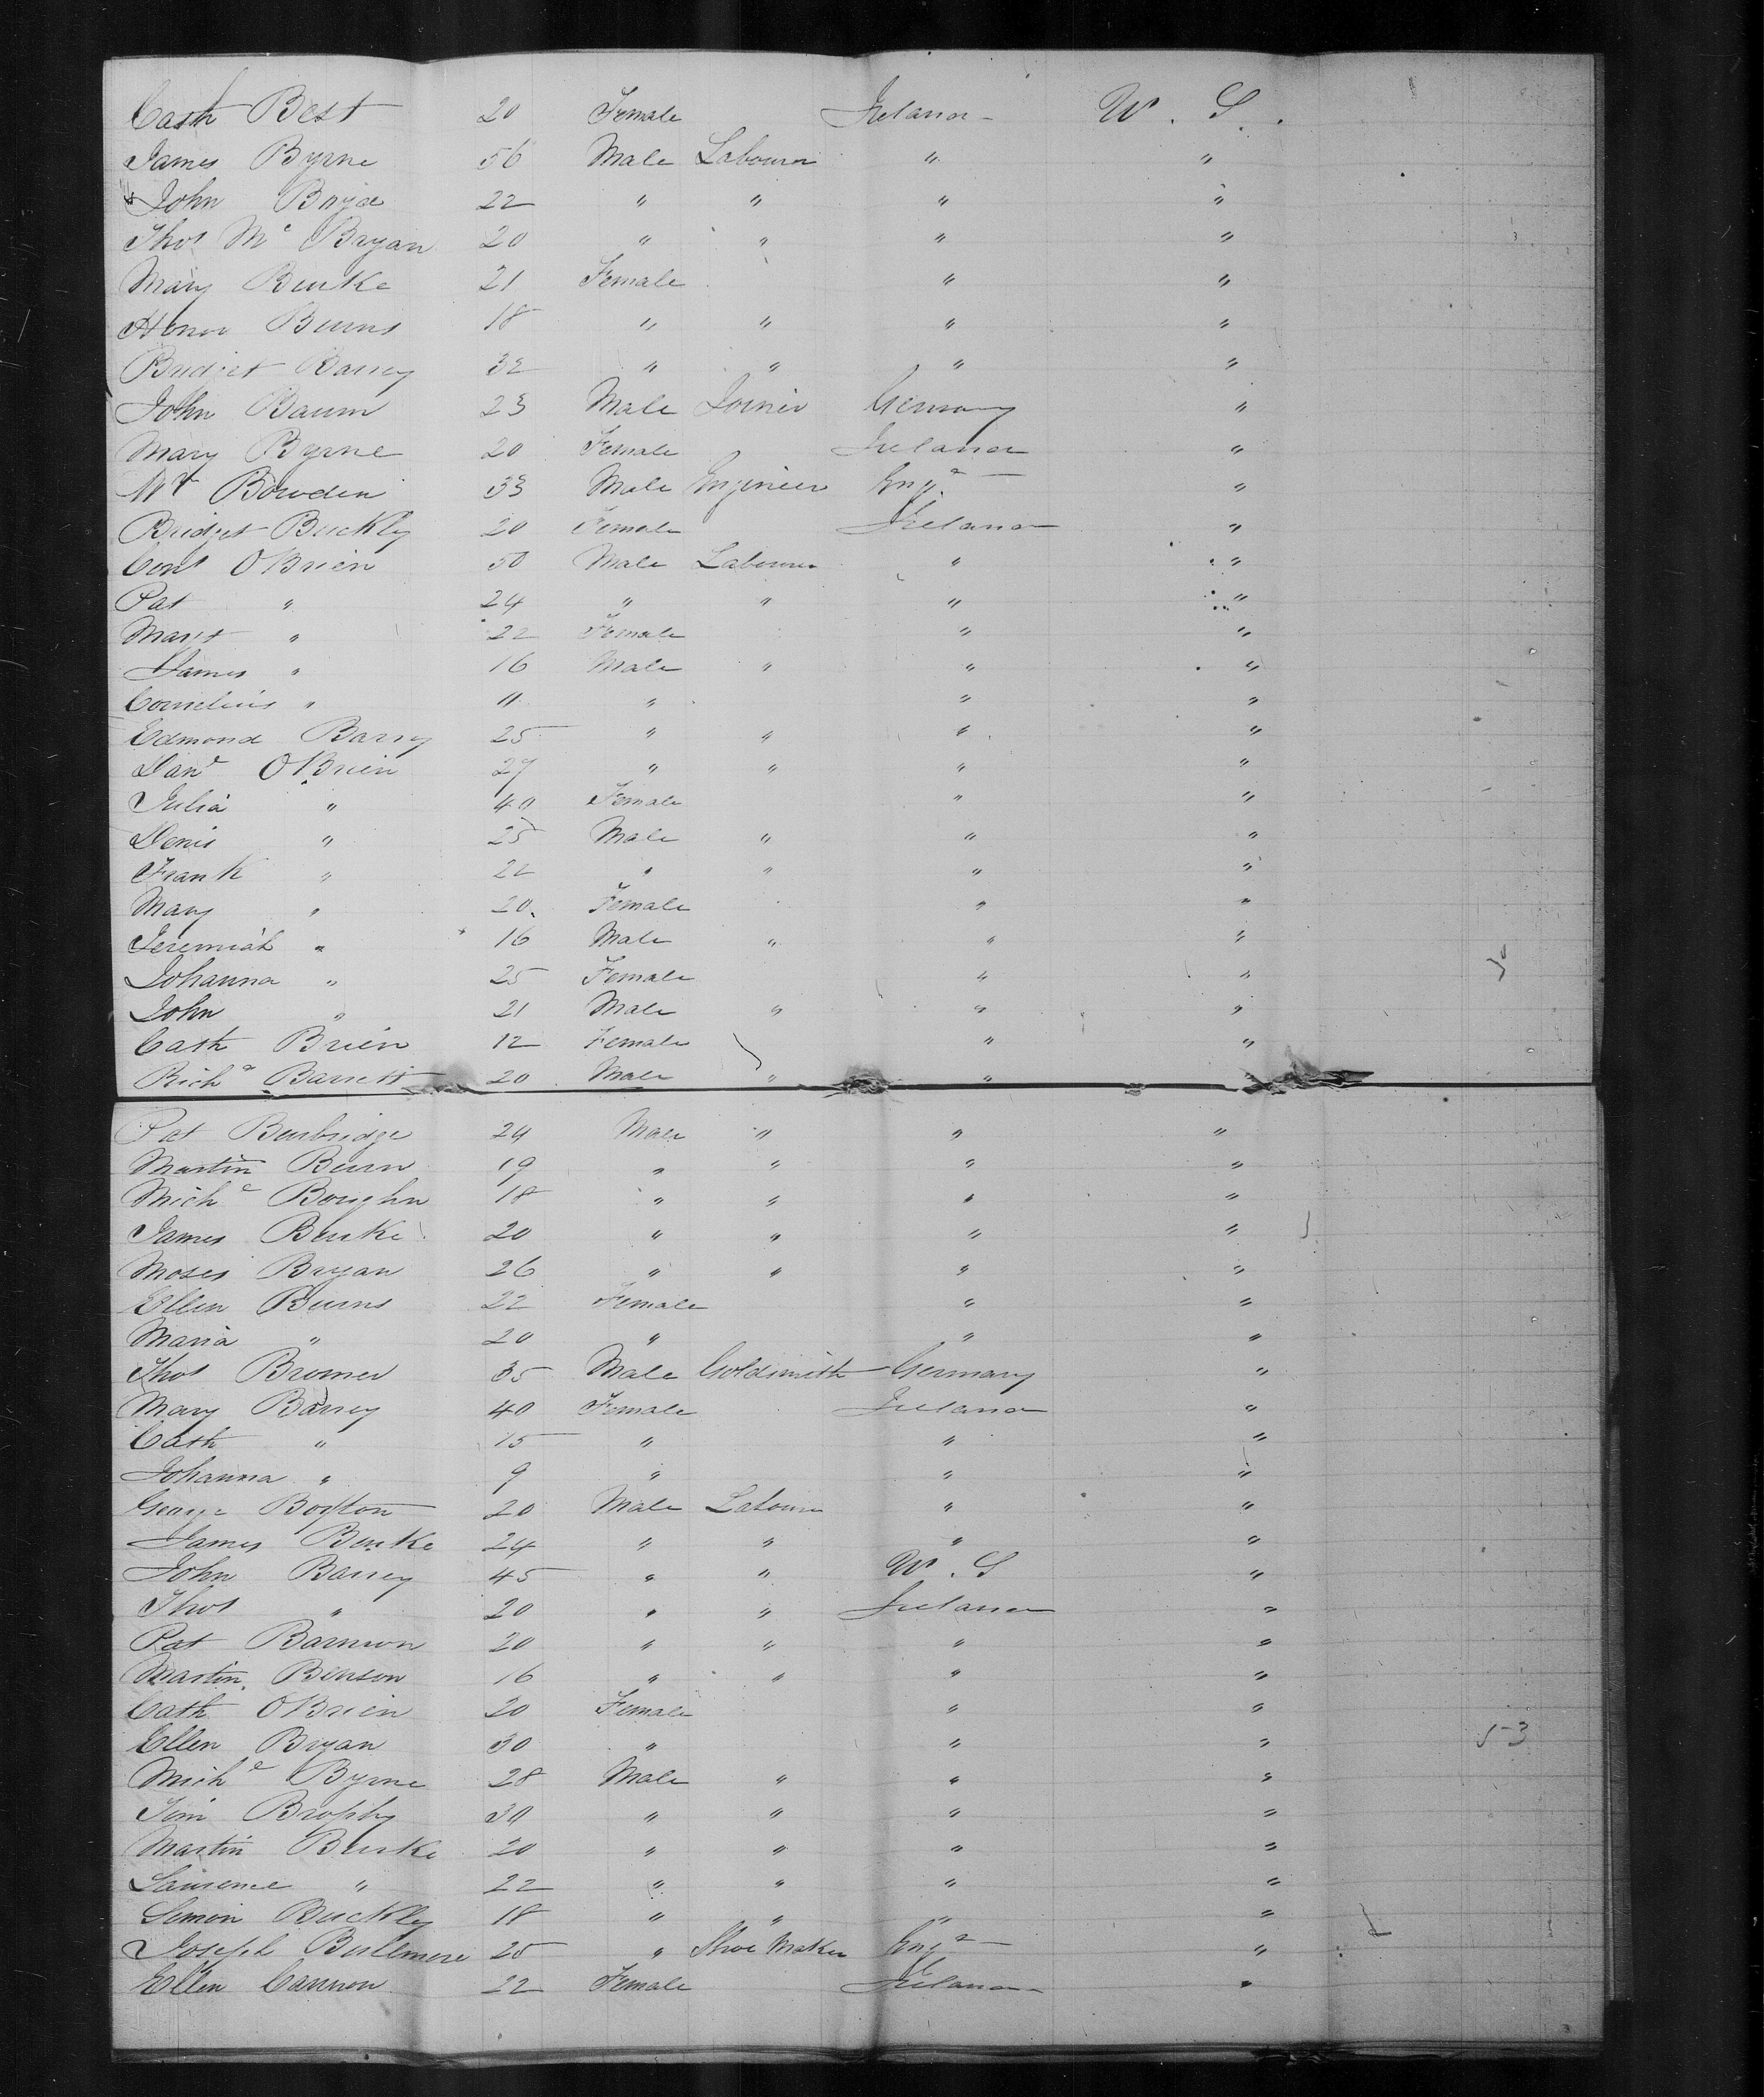 Cath Best 20 Female Ireland - W. S.
James Byrne 56 Male Labourer " "
John Boyd 22 " " " "
Thos Mc Bryan 20 " " " "
Mary Burke 21 Female " "
Honor Burns 18 " " " "
Bridget Barry 32 " " " "
John Baum 23 Male Joiner Germany "
Mary Byrne 20 Female Ireland "
Wm Bowden 33 Male Engineer Engd "
Bridget Buckley 20 Female Ireland "
Cons O'Brien 50 Male Labourer " "
Pat " 24 " " " "
Margt " 22 Female " "
James " 16 Male " " "
Cornelius " 11 " " "
Edmond Barry 25 " " " "
Danl O'Brien 27 " " " "
Julia " 40 Female " "
Denis " 25 Male " " "
Frank " 22 " " " "
Mary " 20 Female " "
Jeremiah " 16 Male " " "
Johanna " 25 Female " "
John " 21 Male " " "
Cath Brien 12 Female " "
Richd Barrett 20 Male " " "
Pat Burbridge 24 Male " " "
Martin Burn 19 " " " "
Michl Boughn 18 " " " "
James Burke 20 " " " "
Moses Bryan 26 " " " "
Ellen Burns 22 Female " "
Maria " 20 " " "
Thos Bromer 35 Male Goldsmith Germany "
Mary Barry 40 Female Ireland "
Cath " 15 " " "
Johanna " 9 " " "
George Boylton 20 Male Labourer " "
James Burke 24 " " " "
John Barry 45 " " W. S "
Thos " 20 " " Ireland "
Pat Bannon 20 " " " "
Martin Benson 16 " " " "
Cath O'Brien 20 Female " "
Ellen Bryan 30 " " "
Michl Byrne 28 Male " " "
Tim Brophy 30 " " " "
Martin Burke 20 " " " "
Laurence " 22 " " " "
Simon Buckley 18 " " " "
Joseph Bullmore 25 " Shoe Maker Engd "
Ellen Cannon 22 Female Ireland "
53